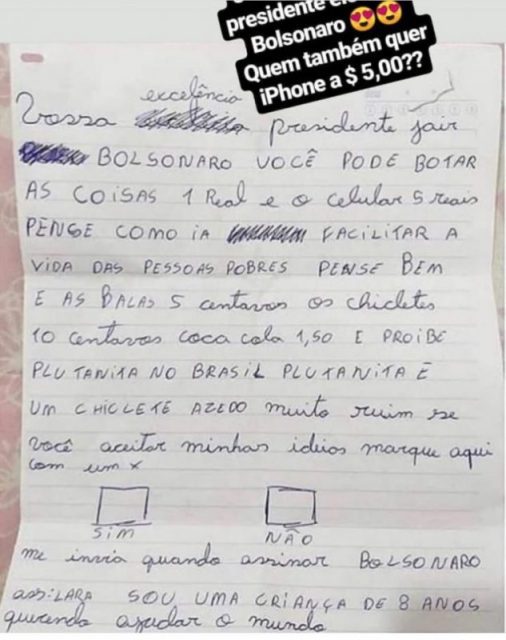 presidente
Bolsonaro 😍😍
Quem também quer
iPhone a $ 5,00??
excelência
Vossa presidente jair
BOLSONARO VOCÊ PODE BOTAR
AS COISAS 1 Real e o celular 5 reais
PENSE COMO IA FACILITAR A
VIDA DAS PESSOAS POBRES PENSE BEM
E AS BALAS 5 centavos os chicletes
10 centavos coca cola 1,50 E PROIBE
PLUTANITA NO BRASIL PLUTANITA É
UM CHICLETE AZEDO muito ruim se
você aceitar minhas ideios marque aqui
com um x
SIM NÃO
me invia quando assinar BOLSONARO
assilARA SOU UMA CRIANÇA DE 8 ANOS
querendo ajudar o mundo